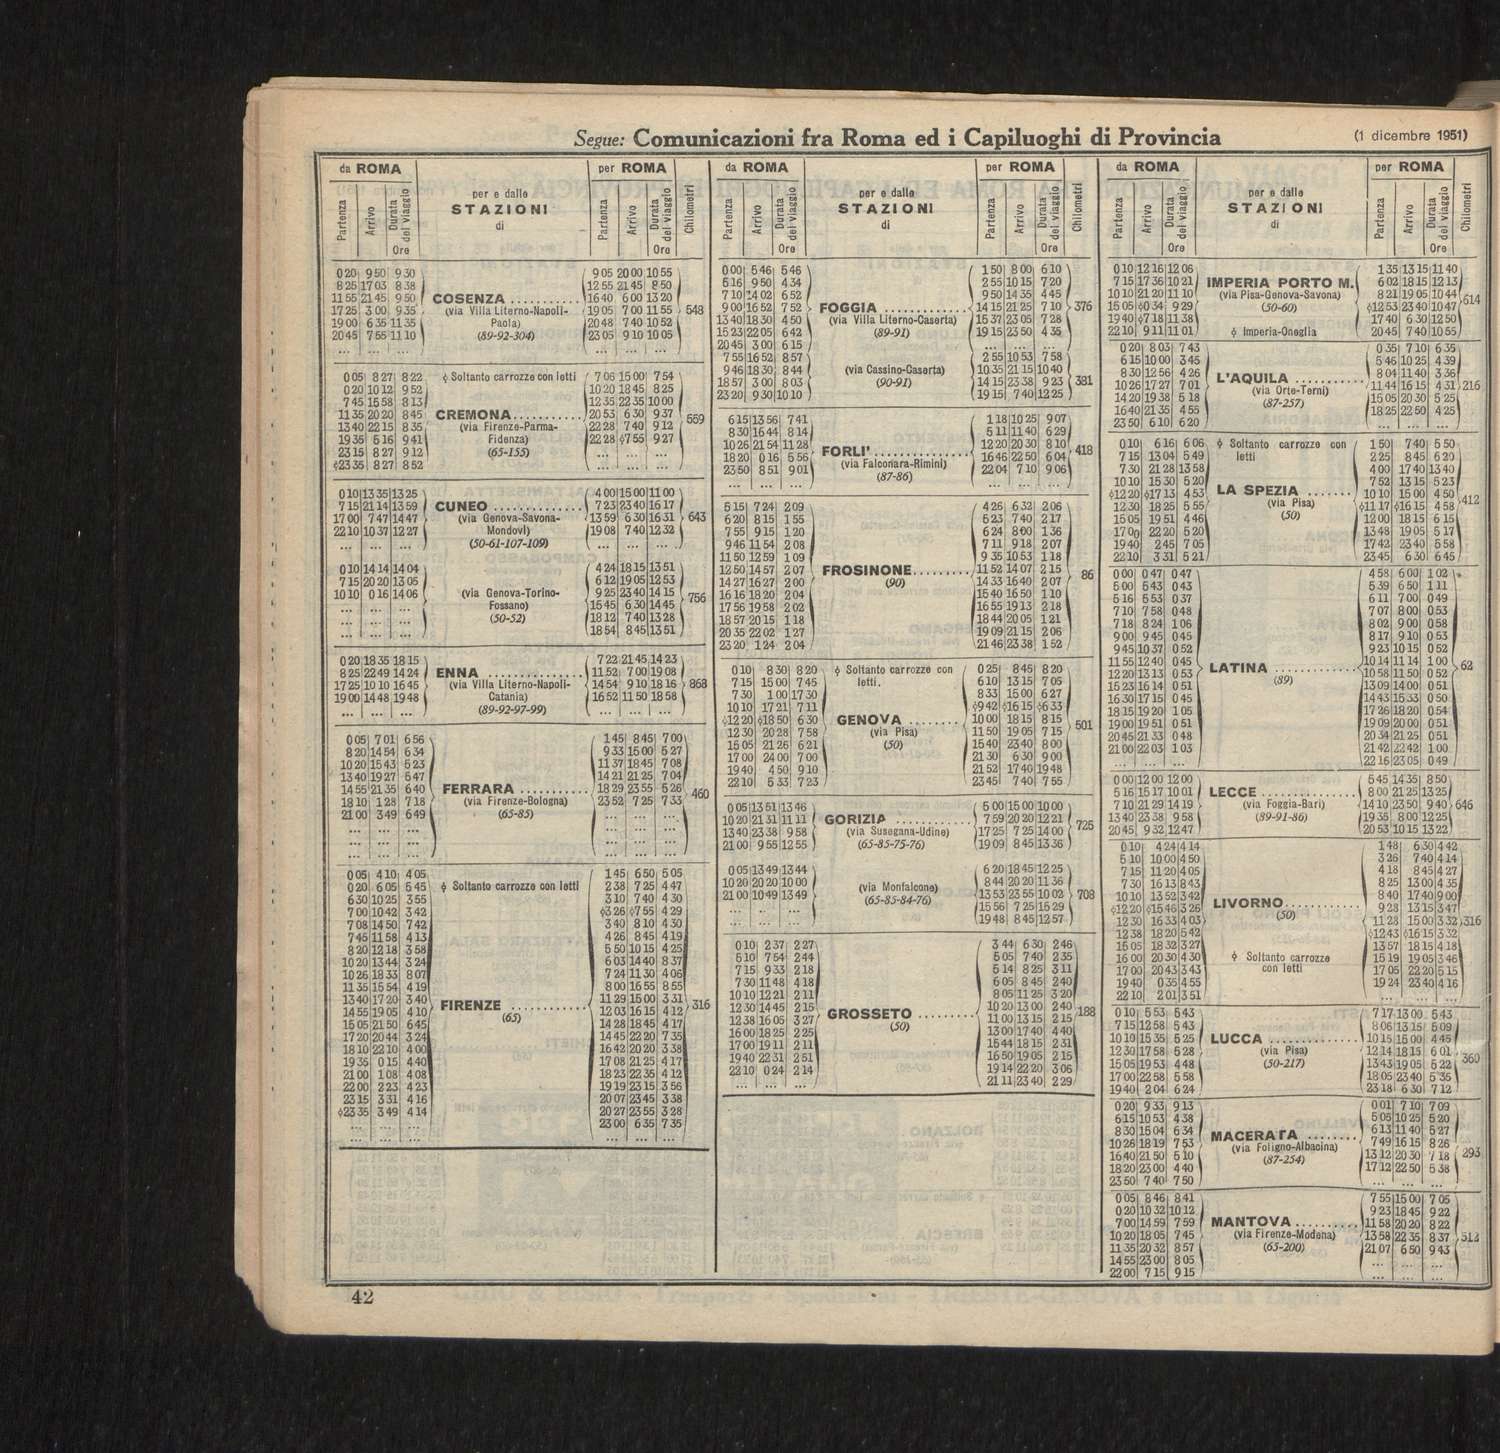 Segue: Comunicazioni fra Roma ed i Capiluoghi di Provincia (1 dicembre 1951)
da ROMA per e dalle STAZIONI di per ROMA
Partenza Arrivo Durata del viaggio Ore Partenza Arrivo Durata del viaggio Ore Chilometri
0 20 9 50 9 30 9 05 20 00 10 55
8 25 17 03 8 38 12 55 21 45 8 50
11 55 21 45 9 50 COSENZA 16 40 6 00 13 20
17 25 3 00 9 35 (via Villa Literno-Napoli- 19 05 7 00 11 55 548
19 00 6 35 11 35 Paola) 20 48 7 40 10 52
20 45 7 55 11 10 (89-92-304) 23 05 9 10 10 05
... ... ... ... ... ...
0 05 8 27 8 22 ϕ Soltanto carrozze con letti 7 06 15 00 7 54
0 20 10 12 9 52 10 20 18 45 8 25
7 45 15 58 8 13 12 35 22 35 10 00
11 35 20 20 8 45 CREMONA 20 53 6 30 9 37 559
13 40 22 15 8 35 (via Firenze-Parma- 22 28 7 40 9 12
19 35 5 16 9 41 Fidenza) 22 28 ϕ7 55 9 27
23 15 8 27 9 12 (65-155) ... ... ...
ϕ23 35 8 27 8 52 ... ... ...
0 10 13 35 13 25 4 00 15 00 11 00
7 15 21 14 13 59 CUNEO 7 23 23 40 16 17
17 00 7 47 14 47 (via Genova-Savona- 13 59 6 30 16 31 643
22 10 10 37 12 27 Mondovì) 19 08 7 40 12 32
... ... ... (50-61-107-109) ... ... ...
0 10 14 14 14 04 4 24 18 15 13 51
7 15 20 20 13 05 6 12 19 05 12 53
10 10 0 16 14 06 (via Genova-Torino- 9 25 23 40 14 15
... ... ... Fossano) 15 45 6 30 14 45 756
... ... ... (50-52) 18 12 7 40 13 28
... ... ... 18 54 8 45 13 51
0 20 18 35 18 15 7 22 21 45 14 23
8 25 22 49 14 24 ENNA 11 52 7 00 19 08
17 25 10 10 16 45 (via Villa Literno-Napoli- 14 54 9 10 18 16 868
19 00 14 48 19 48 Catania) 16 52 11 50 18 58
... ... ... (89-92-97-99) ... ... ...
0 05 7 01 6 56 1 45 8 45 7 00
8 20 14 54 6 34 9 33 15 00 5 27
10 20 15 43 5 23 11 37 18 45 7 08
13 40 19 27 5 47 14 21 21 25 7 04
14 55 21 35 6 40 FERRARA 18 29 23 55 5 26 460
18 10 1 28 7 18 (via Firenze-Bologna) 23 52 7 25 7 33
21 00 3 49 6 49 (65-85) ... ... ...
... ... ... ... ... ...
... ... ... ... ... ...
... ... ... ... ... ...
0 05 4 10 4 05 1 45 6 50 5 05
0 20 6 05 5 45 ϕ Soltanto carrozze con letti 2 38 7 25 4 47
6 30 10 25 3 55 3 10 7 40 4 30
7 00 10 42 3 42 ϕ3 26 ϕ7 55 4 29
7 08 14 50 7 42 3 40 8 10 4 30
7 45 11 58 4 13 4 26 8 45 4 19
8 20 12 18 3 58 5 50 10 15 4 25
10 20 13 44 3 24 6 03 14 40 8 37
10 26 18 33 8 07 7 24 11 30 4 06
11 35 15 54 4 19 8 00 16 55 8 55
13 40 17 20 3 40 FIRENZE 11 29 15 00 3 31 316
14 55 19 05 4 10 (65) 12 03 16 15 4 12
15 05 21 50 6 45 14 28 18 45 4 17
17 20 20 44 3 24 14 45 22 20 7 35
18 10 22 10 4 00 16 42 20 20 3 38
19 35 0 15 4 40 17 08 21 25 4 17
21 00 1 08 4 08 18 23 22 35 4 12
22 00 2 23 4 23 19 19 23 15 3 56
23 15 3 31 4 16 20 07 23 45 3 38
ϕ23 35 3 49 4 14 20 27 23 55 3 28
... ... ... 23 00 6 35 7 35
... ... ... ... ... ...
da ROMA per e dalle STAZIONI di per ROMA
Partenza Arrivo Durata del viaggio Ore Partenza Arrivo Durata del viaggio Ore Chilometri
0 00 5 46 5 46 1 50 8 00 6 10
5 16 9 50 4 34 2 55 10 15 7 20
7 10 14 02 6 52 9 50 14 35 4 45
9 00 16 52 7 52 FOGGIA 14 15 21 25 7 10 376
13 40 18 30 4 50 (via Villa Literno-Caserta) 15 37 23 05 7 28
15 23 22 05 6 42 (89-91) 19 15 23 50 4 35
20 45 3 00 6 15 ... ... ...
7 55 16 52 8 57 2 55 10 53 7 58
9 46 18 30 8 44 (via Cassino-Caserta) 10 35 21 15 10 40
18 57 3 00 8 03 (90-91) 14 15 23 38 9 23 381
23 20 9 30 10 10 19 15 7 40 12 25
6 15 13 56 7 41 1 18 10 25 9 07
8 30 16 44 8 14 5 11 11 40 6 29
10 26 21 54 11 28 FORLI' 12 20 20 30 8 10 418
18 20 0 16 5 56 (via Falconara-Rimini) 16 46 22 50 6 04
23 50 8 51 9 01 (87-86) 22 04 7 10 9 06
... ... ... ... ... ...
5 15 7 24 2 09 4 26 6 32 2 06
6 20 8 15 1 55 5 23 7 40 2 17
7 55 9 15 1 20 6 24 8 00 1 36
9 46 11 54 2 08 7 11 9 18 2 07
11 50 12 59 1 09 9 35 10 53 1 18
12 50 14 57 2 07 FROSINONE 11 52 14 07 2 15 86
14 27 16 27 2 00 (90) 14 33 16 40 2 07
16 16 18 20 2 04 15 40 16 50 1 10
17 56 19 58 2 02 16 55 19 13 2 18
18 57 20 15 1 18 18 44 20 05 1 21
20 35 22 02 1 27 19 09 21 15 2 06
23 20 1 24 2 04 21 46 23 38 1 52
0 10 8 30 8 20 ϕ Soltanto carrozze con 0 25 8 45 8 20
7 15 15 00 7 45 letti. 6 10 13 15 7 05
7 30 1 00 17 30 8 33 15 00 6 27
10 10 17 21 7 11 ϕ9 42 ϕ16 15 ϕ6 33
ϕ12 20 ϕ18 50 6 30 GENOVA 10 00 18 15 8 15 501
12 30 20 28 7 58 (via Pisa) 11 50 19 05 7 15
15 05 21 26 6 21 (50) 15 40 23 40 8 00
17 00 24 00 7 00 21 30 6 30 9 00
19 40 4 50 9 10 21 52 17 40 19 48
22 10 5 33 7 23 23 45 7 40 7 55
0 05 13 51 13 46 5 00 15 00 10 00
10 20 21 31 11 11 GORIZIA 7 59 20 20 12 21
13 40 23 38 9 58 (via Susegana-Udine) 17 25 7 25 14 00 725
21 00 9 55 12 55 (65-85-75-76) 19 09 8 45 13 36
0 05 13 49 13 44 6 20 18 45 12 25
10 20 20 20 10 00 (via Monfalcone) 8 44 20 20 11 36
21 00 10 49 13 49 (65-85-84-76) 13 53 23 55 10 02 708
... ... ... 15 56 7 25 15 29
... ... ... 19 48 8 45 12 57
0 10 2 37 2 27 3 44 6 30 2 46
5 10 7 54 2 44 5 05 7 40 2 35
7 15 9 33 2 18 5 14 8 25 3 11
7 30 11 48 4 18 6 05 8 45 2 40
10 10 12 21 2 11 8 05 11 25 3 20
12 30 14 45 2 15 GROSSETO 10 20 13 00 2 40 188
12 38 16 05 3 27 (50) 11 00 13 15 2 15
16 00 18 25 2 25 13 00 17 40 4 40
17 00 19 11 2 11 15 44 18 15 2 31
19 40 22 31 2 51 16 50 19 05 2 15
22 10 0 24 2 14 19 14 22 20 3 06
... ... ... 21 11 23 40 2 29
da ROMA per e dalle STAZIONI di per ROMA
Partenza Arrivo Durata del viaggio Ore Partenza Arrivo Durata del viaggio Ore Chilometri
0 10 12 16 12 06 1 35 13 15 11 40
7 15 17 36 10 21 IMPERIA PORTO M. 6 02 18 15 12 13
10 10 21 20 11 10 (via Pisa-Genova-Savona) 8 21 19 05 10 44 614
15 05 ϕ0 34 9 29 (50-60) ϕ12 53 23 40 10 47
19 40 ϕ7 18 11 38 17 40 6 30 12 50
22 10 9 11 11 01 ϕ Imperia-Oneglia 20 45 7 40 10 55
0 20 8 03 7 43 0 35 7 10 6 35
6 15 10 00 3 45 5 46 10 25 4 39
8 30 12 56 4 26 L'AQUILA 8 04 11 40 3 36
10 26 17 27 7 01 (via Orte-Terni) 11 44 16 15 4 31 216
14 20 19 38 5 18 (87-257) 15 05 20 30 5 25
16 40 21 35 4 55 18 25 22 50 4 25
23 50 6 10 6 20 ... ... ...
0 10 6 16 6 06 ϕ Soltanto carrozze con 1 50 7 40 5 50
7 15 13 04 5 49 letti 2 25 8 45 6 20
7 30 21 28 13 58 4 00 17 40 13 40
10 10 15 30 5 20 7 52 13 15 5 23
ϕ12 20 ϕ17 13 4 53 LA SPEZIA 10 10 15 00 4 50 412
12 30 18 25 5 55 (via Pisa) ϕ11 17 ϕ16 15 4 58
15 05 19 51 4 46 (50) 12 00 18 15 6 15
17 00 22 20 5 20 13 48 19 05 5 17
19 40 2 45 7 05 17 42 23 40 5 58
22 10 3 31 5 21 23 45 6 30 6 45
0 00 0 47 0 47 4 58 6 00 1 02
5 00 5 43 0 43 5 39 6 50 1 11
5 16 5 53 0 37 6 11 7 00 0 49
7 10 7 58 0 48 7 07 8 00 0 53
7 18 8 24 1 06 8 02 9 00 0 58
9 00 9 45 0 45 8 17 9 10 0 53
9 45 10 37 0 52 9 23 10 15 0 52
11 55 12 40 0 45 LATINA 10 14 11 14 1 00 62
12 20 13 13 0 53 (89) 10 58 11 50 0 52
15 23 16 14 0 51 13 09 14 00 0 51
16 30 17 15 0 45 14 43 15 33 0 50
18 15 19 20 1 05 17 26 18 20 0 54
19 00 19 51 0 51 19 09 20 00 0 51
20 45 21 33 0 48 20 34 21 25 0 51
21 00 22 03 1 03 21 42 22 42 1 00
... ... ... 22 16 23 05 0 49
0 00 12 00 12 00 5 45 14 35 8 50
5 16 15 17 10 01 LECCE 8 00 21 25 13 25
7 10 21 29 14 19 (via Foggia-Bari) 14 10 23 50 9 40 646
13 40 23 38 9 58 (89-91-86) 19 35 8 00 12 25
20 45 9 32 12 47 20 53 10 15 13 22
0 10 4 24 4 14 1 48 6 30 4 42
5 10 10 00 4 50 3 26 7 40 4 14
7 15 11 20 4 05 4 18 8 45 4 27
7 30 16 13 8 43 8 25 13 00 4 35
10 10 13 52 3 42 LIVORNO 8 40 17 40 9 00
ϕ12 20 ϕ15 46 3 26 (50) 9 28 13 15 3 47
12 30 16 33 4 03 11 28 15 00 3 32 316
12 38 18 20 5 42 ϕ12 43 ϕ16 15 3 32
15 05 18 32 3 27 13 57 18 15 4 18
16 00 20 30 4 30 ϕ Soltanto carrozze 15 19 19 05 3 46
17 00 20 43 3 43 con letti 17 05 22 20 5 15
19 40 0 35 4 55 19 24 23 40 4 16
22 10 2 01 3 51 ... ... ...
0 10 5 53 5 43 7 17 13 00 5 43
7 15 12 58 5 43 8 06 13 15 5 09
10 10 15 35 5 25 LUCCA 10 15 15 00 4 45
12 30 17 58 5 28 (via Pisa) 12 14 18 15 6 01 360
15 05 19 53 4 48 (50-217) 13 43 19 05 5 22
17 00 22 58 5 58 18 05 23 40 5 35
19 40 2 04 6 24 23 18 6 30 7 12
0 20 9 33 9 13 0 01 7 10 7 09
6 15 10 53 4 38 5 05 10 25 5 20
8 30 15 04 6 34 MACERATA 6 13 11 40 5 27
10 26 18 19 7 53 (via Foligno-Albacina) 7 49 16 15 8 26 293
16 40 21 50 5 10 (87-254) 13 12 20 30 7 18
18 20 23 00 4 40 17 12 22 50 5 38
23 50 7 40 7 50 ... ... ...
0 05 8 46 8 41 7 55 15 00 7 05
0 20 10 32 10 12 9 23 18 45 9 22
7 00 14 59 7 59 MANTOVA 11 58 20 20 8 22
10 20 18 05 7 45 (via Firenze-Modena) 13 58 22 35 8 37 512
11 35 20 32 8 57 (65-200) 21 07 6 50 9 43
14 55 23 00 8 05 ... ... ...
22 00 7 15 9 15 ... ... ...
42